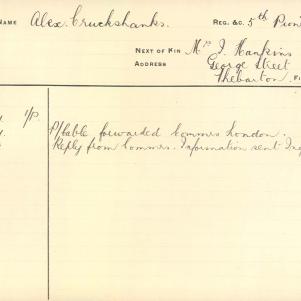 NAME Alex. Cruckshanks. REG. &C. 5th Pion
NEXT OF KIN Mrs J. Hankins
ADDRESS George Street
Thebarton.
1/P. P/Cable forwarded Commrs London.
Reply from Commrs. Information sent Inq